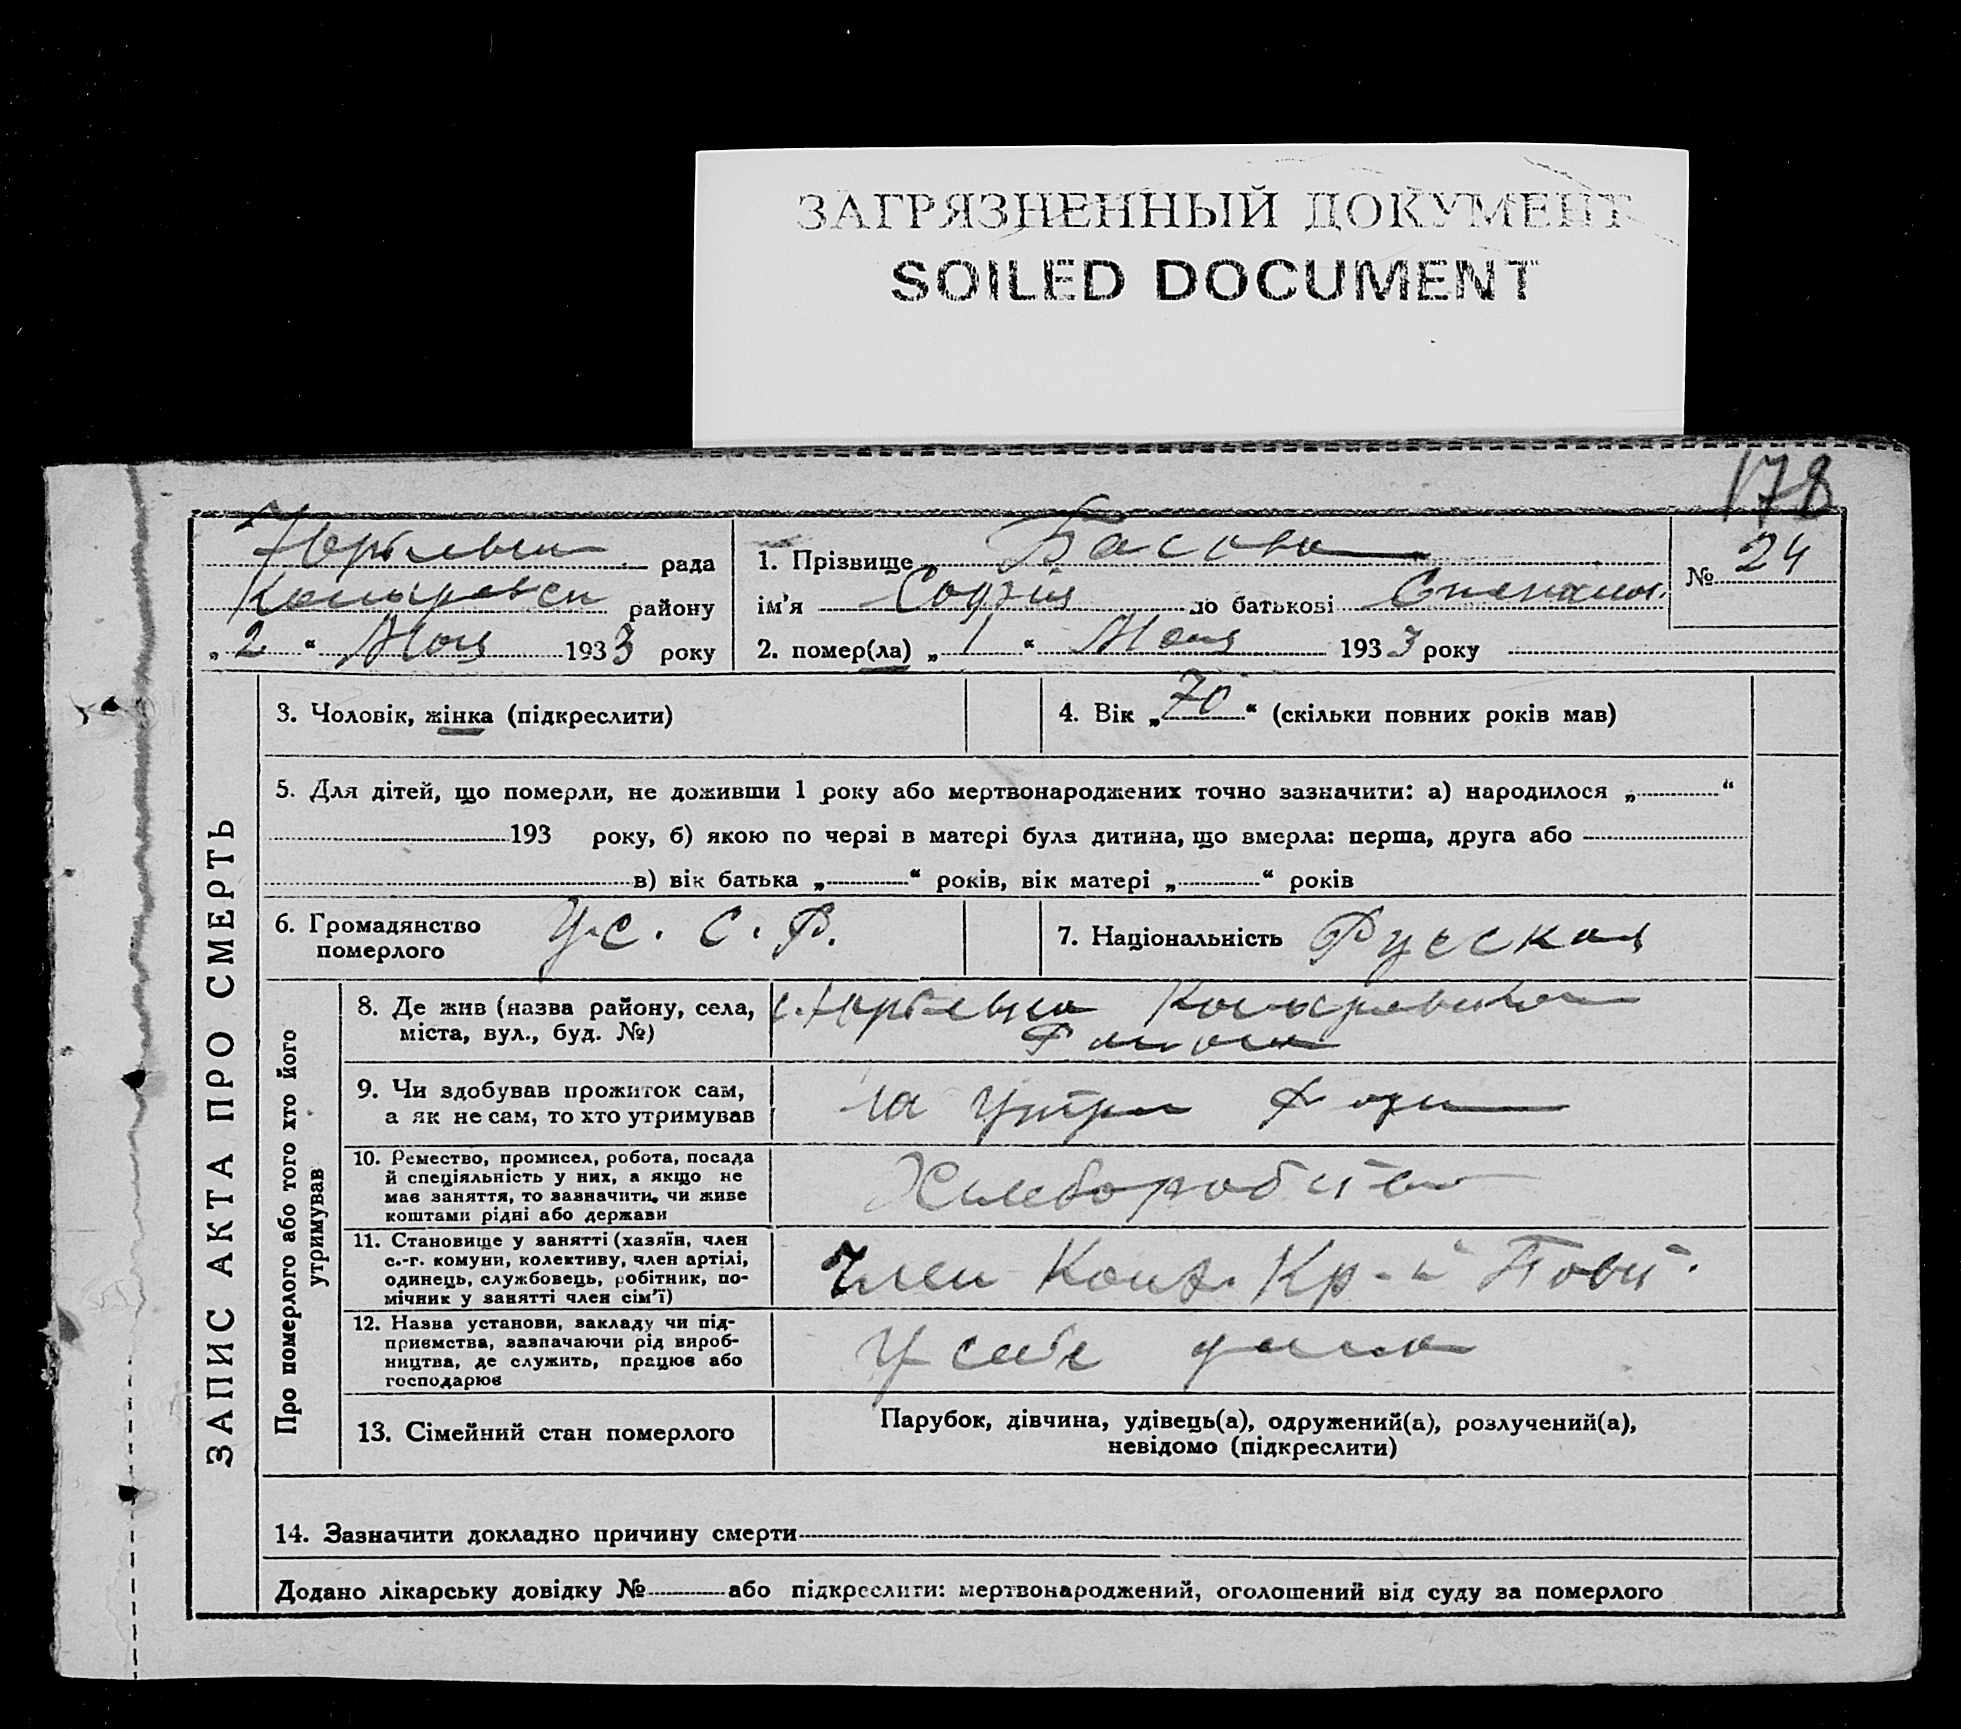 ЗАГРЯЗНЕННЫЙ ДОКУМЕНТ
SOILED DOCUMENT
178
рада
району
„ 2 “ Мая 1933 року
1. Прізвище Басова
ім'я Софія по батькові Степанов.
2. помер(ла) „ 1 “ Мая 1933 року
№ 24
ЗАПИС АКТА ПРО СМЕРТЬ
3. Чоловік, жінка (підкреслити)
4. Вік „ 70 “ (скільки повних років мав)
5. Для дітей, що померли, не доживши 1 року або мертвонароджених точно зазначити: а) народилося „ “
193 року, б) якою по черзі в матері була дитина, що вмерла: перша, друга або
в) вік батька „ “ років, вік матері „ “ років
6. Громадянство
померлого
У.С.С.Р.
7. Національність Русская
Про померлого або того хто його
утримував
8. Де жив (назва району, села,
міста, вул., буд. №)
9. Чи здобував прожиток сам,
а як не сам, то хто утримував
10. Ремество, промисел, робота, посада
й спеціяльність у них, а якщо не
має заняття, то зазначити, чи живе
коштами рідні або держави
11. Становище у занятті (хазяїн, член
с.-г. комуни, колективу, член артілі,
одинець, службовець, робітник, по-
мічник у занятті член сім'ї)
Член
12. Назва установи, закладу чи під-
приємства, зазначаючи рід вироб-
ництва, де служить, працює або
господарює
У себе дома
13. Сімейний стан померлого
Парубок, дівчина, удівець(а), одружений(а), розлучений(а),
невідомо (підкреслити)
14. Зазначити докладно причину смерти
Додано лікарську довідку № або підкреслити: мертвонароджений, оголошений від суду за померлого